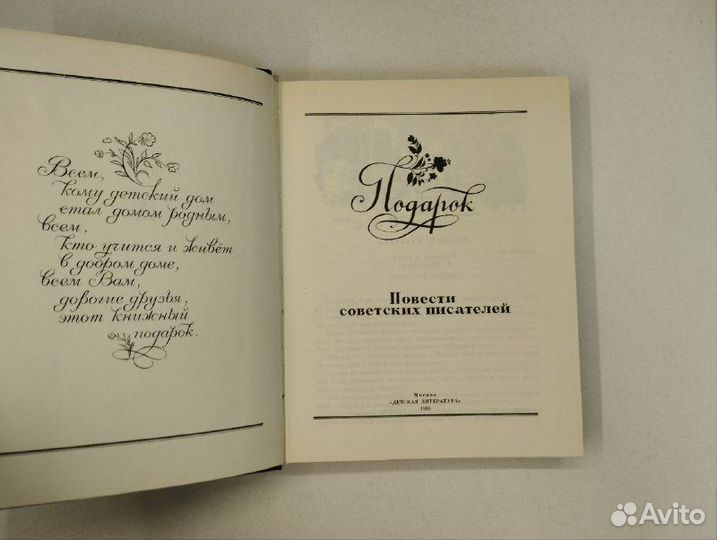 Всем,
кому детский дом
стал домом родным,
всем,
кто учится и живёт
в добром доме,
всем Вам,
дорогие друзья,
этот книжный
подарок.
Подарок
Повести
советских писателей
Москва
«ДЕТСКАЯ ЛИТЕРАТУРА»
Avito